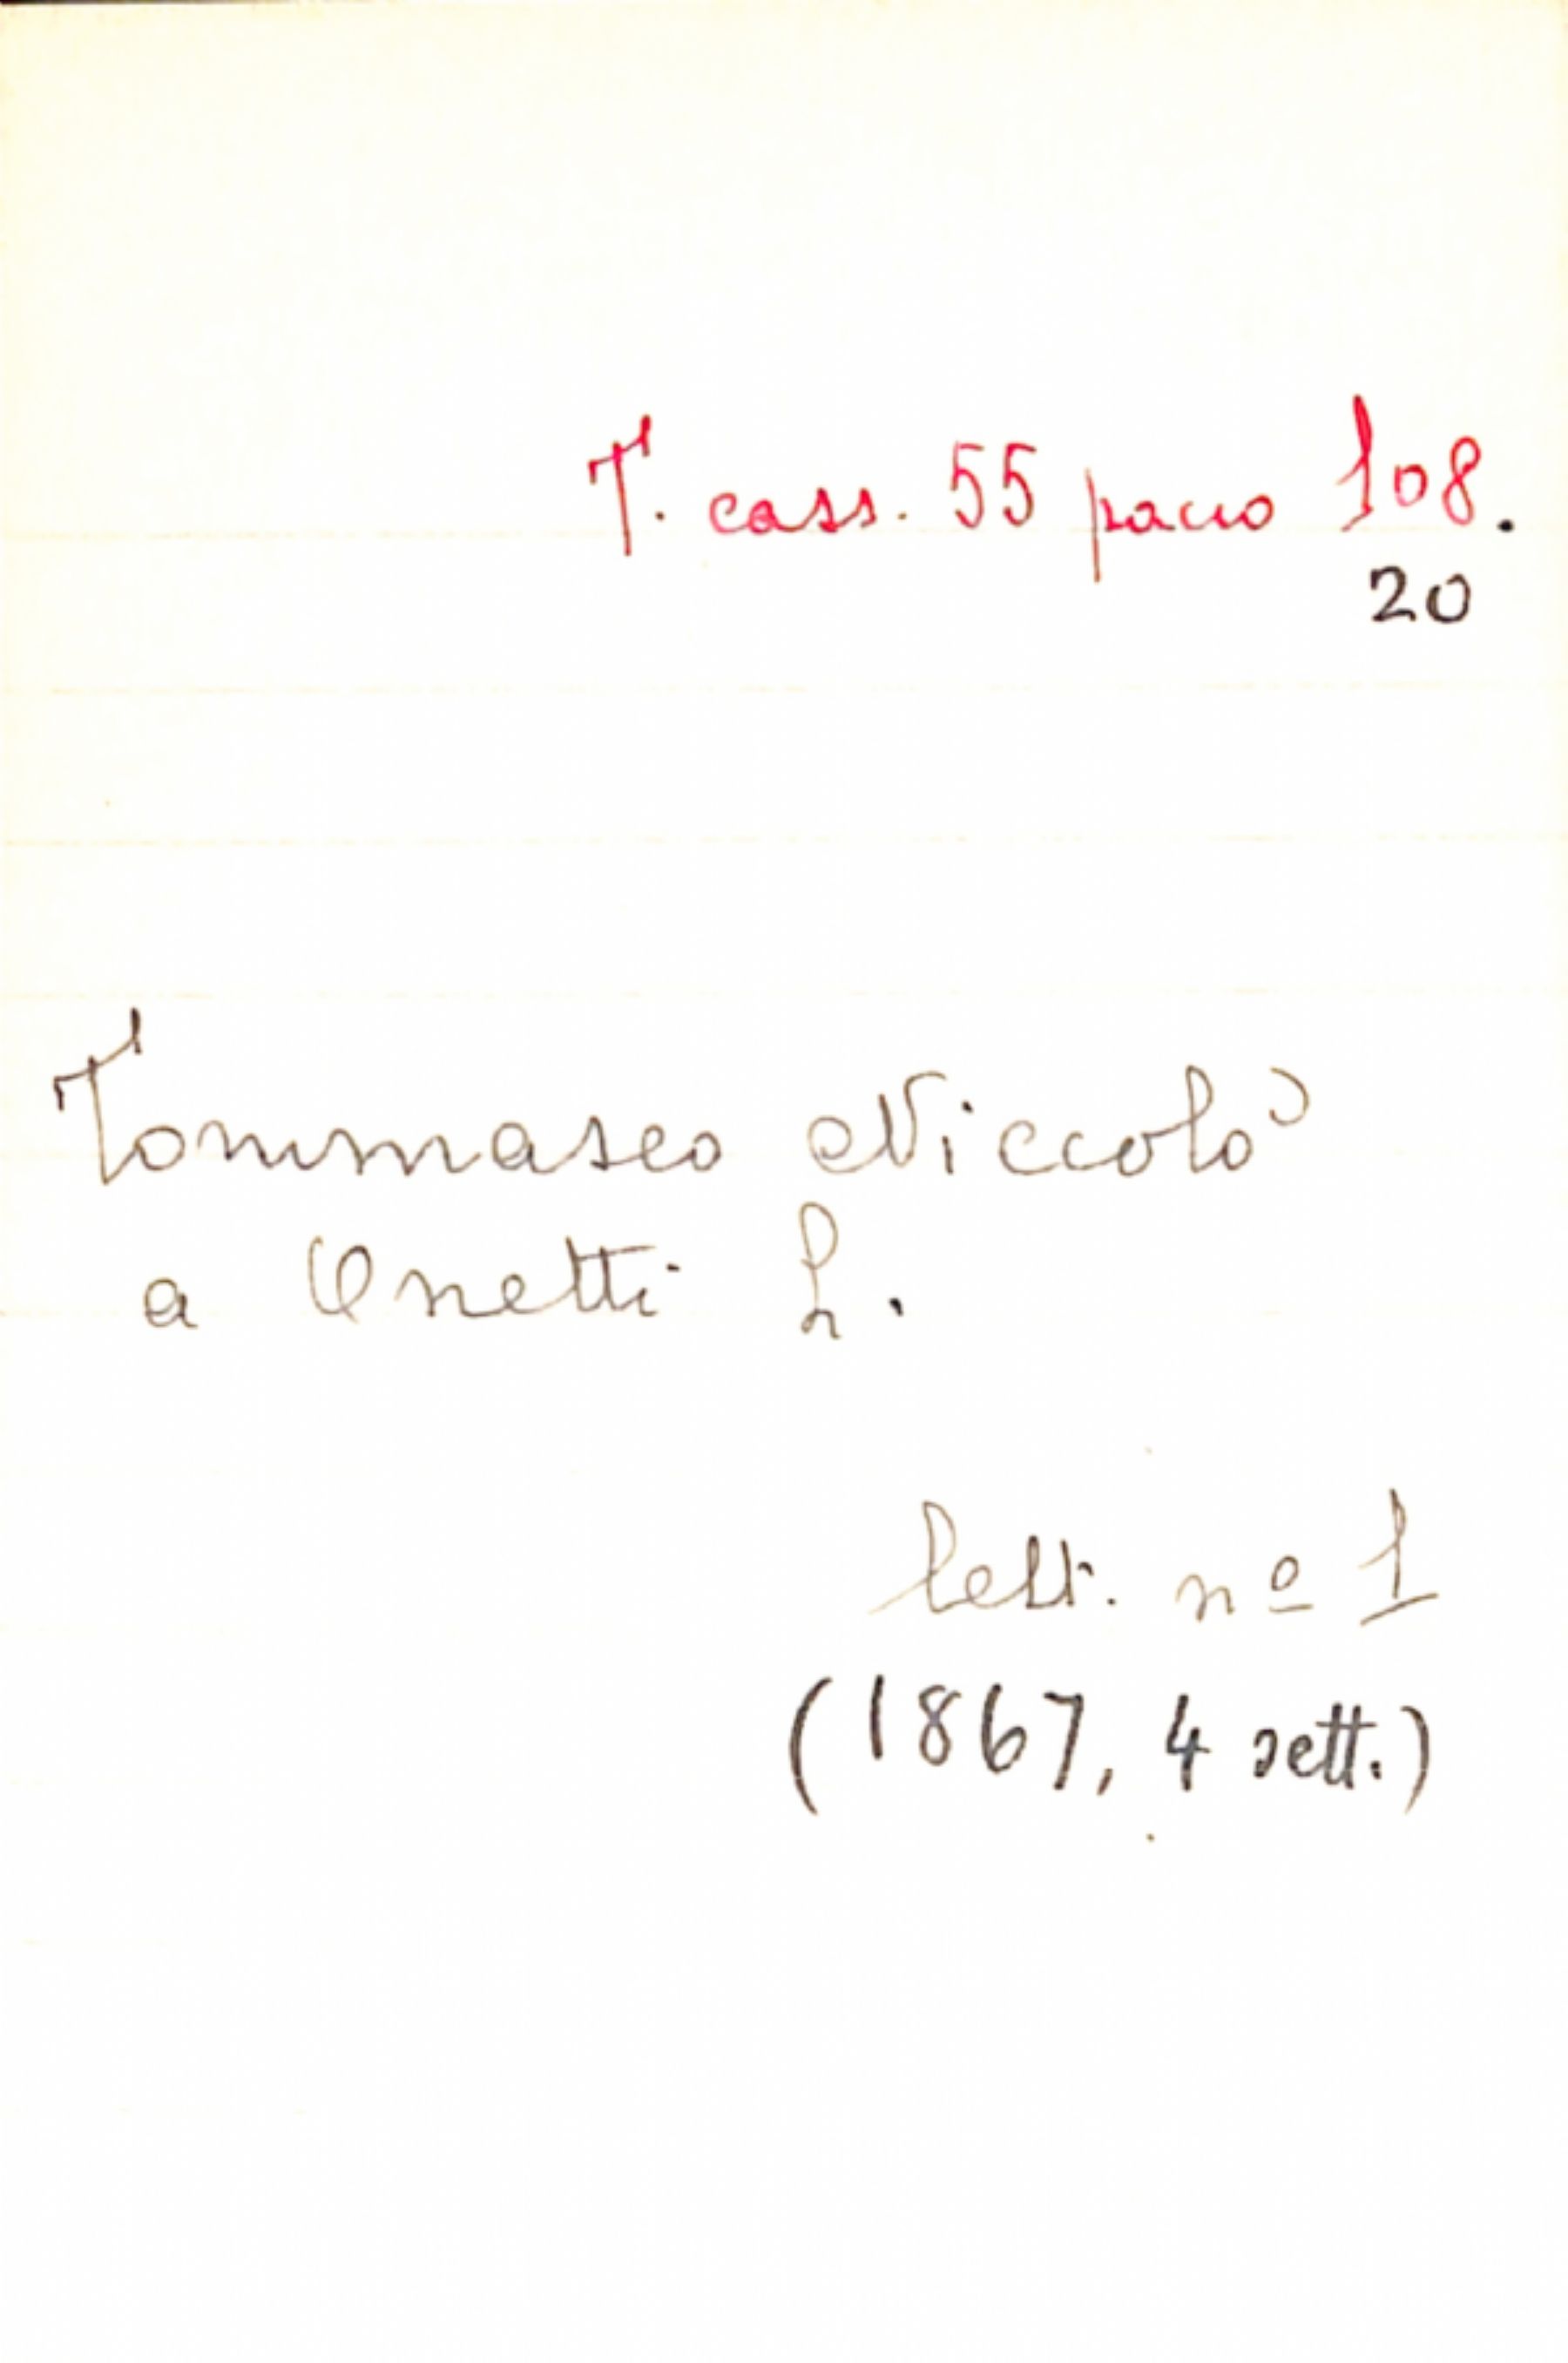 T. cass. 55 pacco 108.
20
Tommaseo Niccolò
a Onetti L.
lett. nº 1
(1867, 4 sett.)